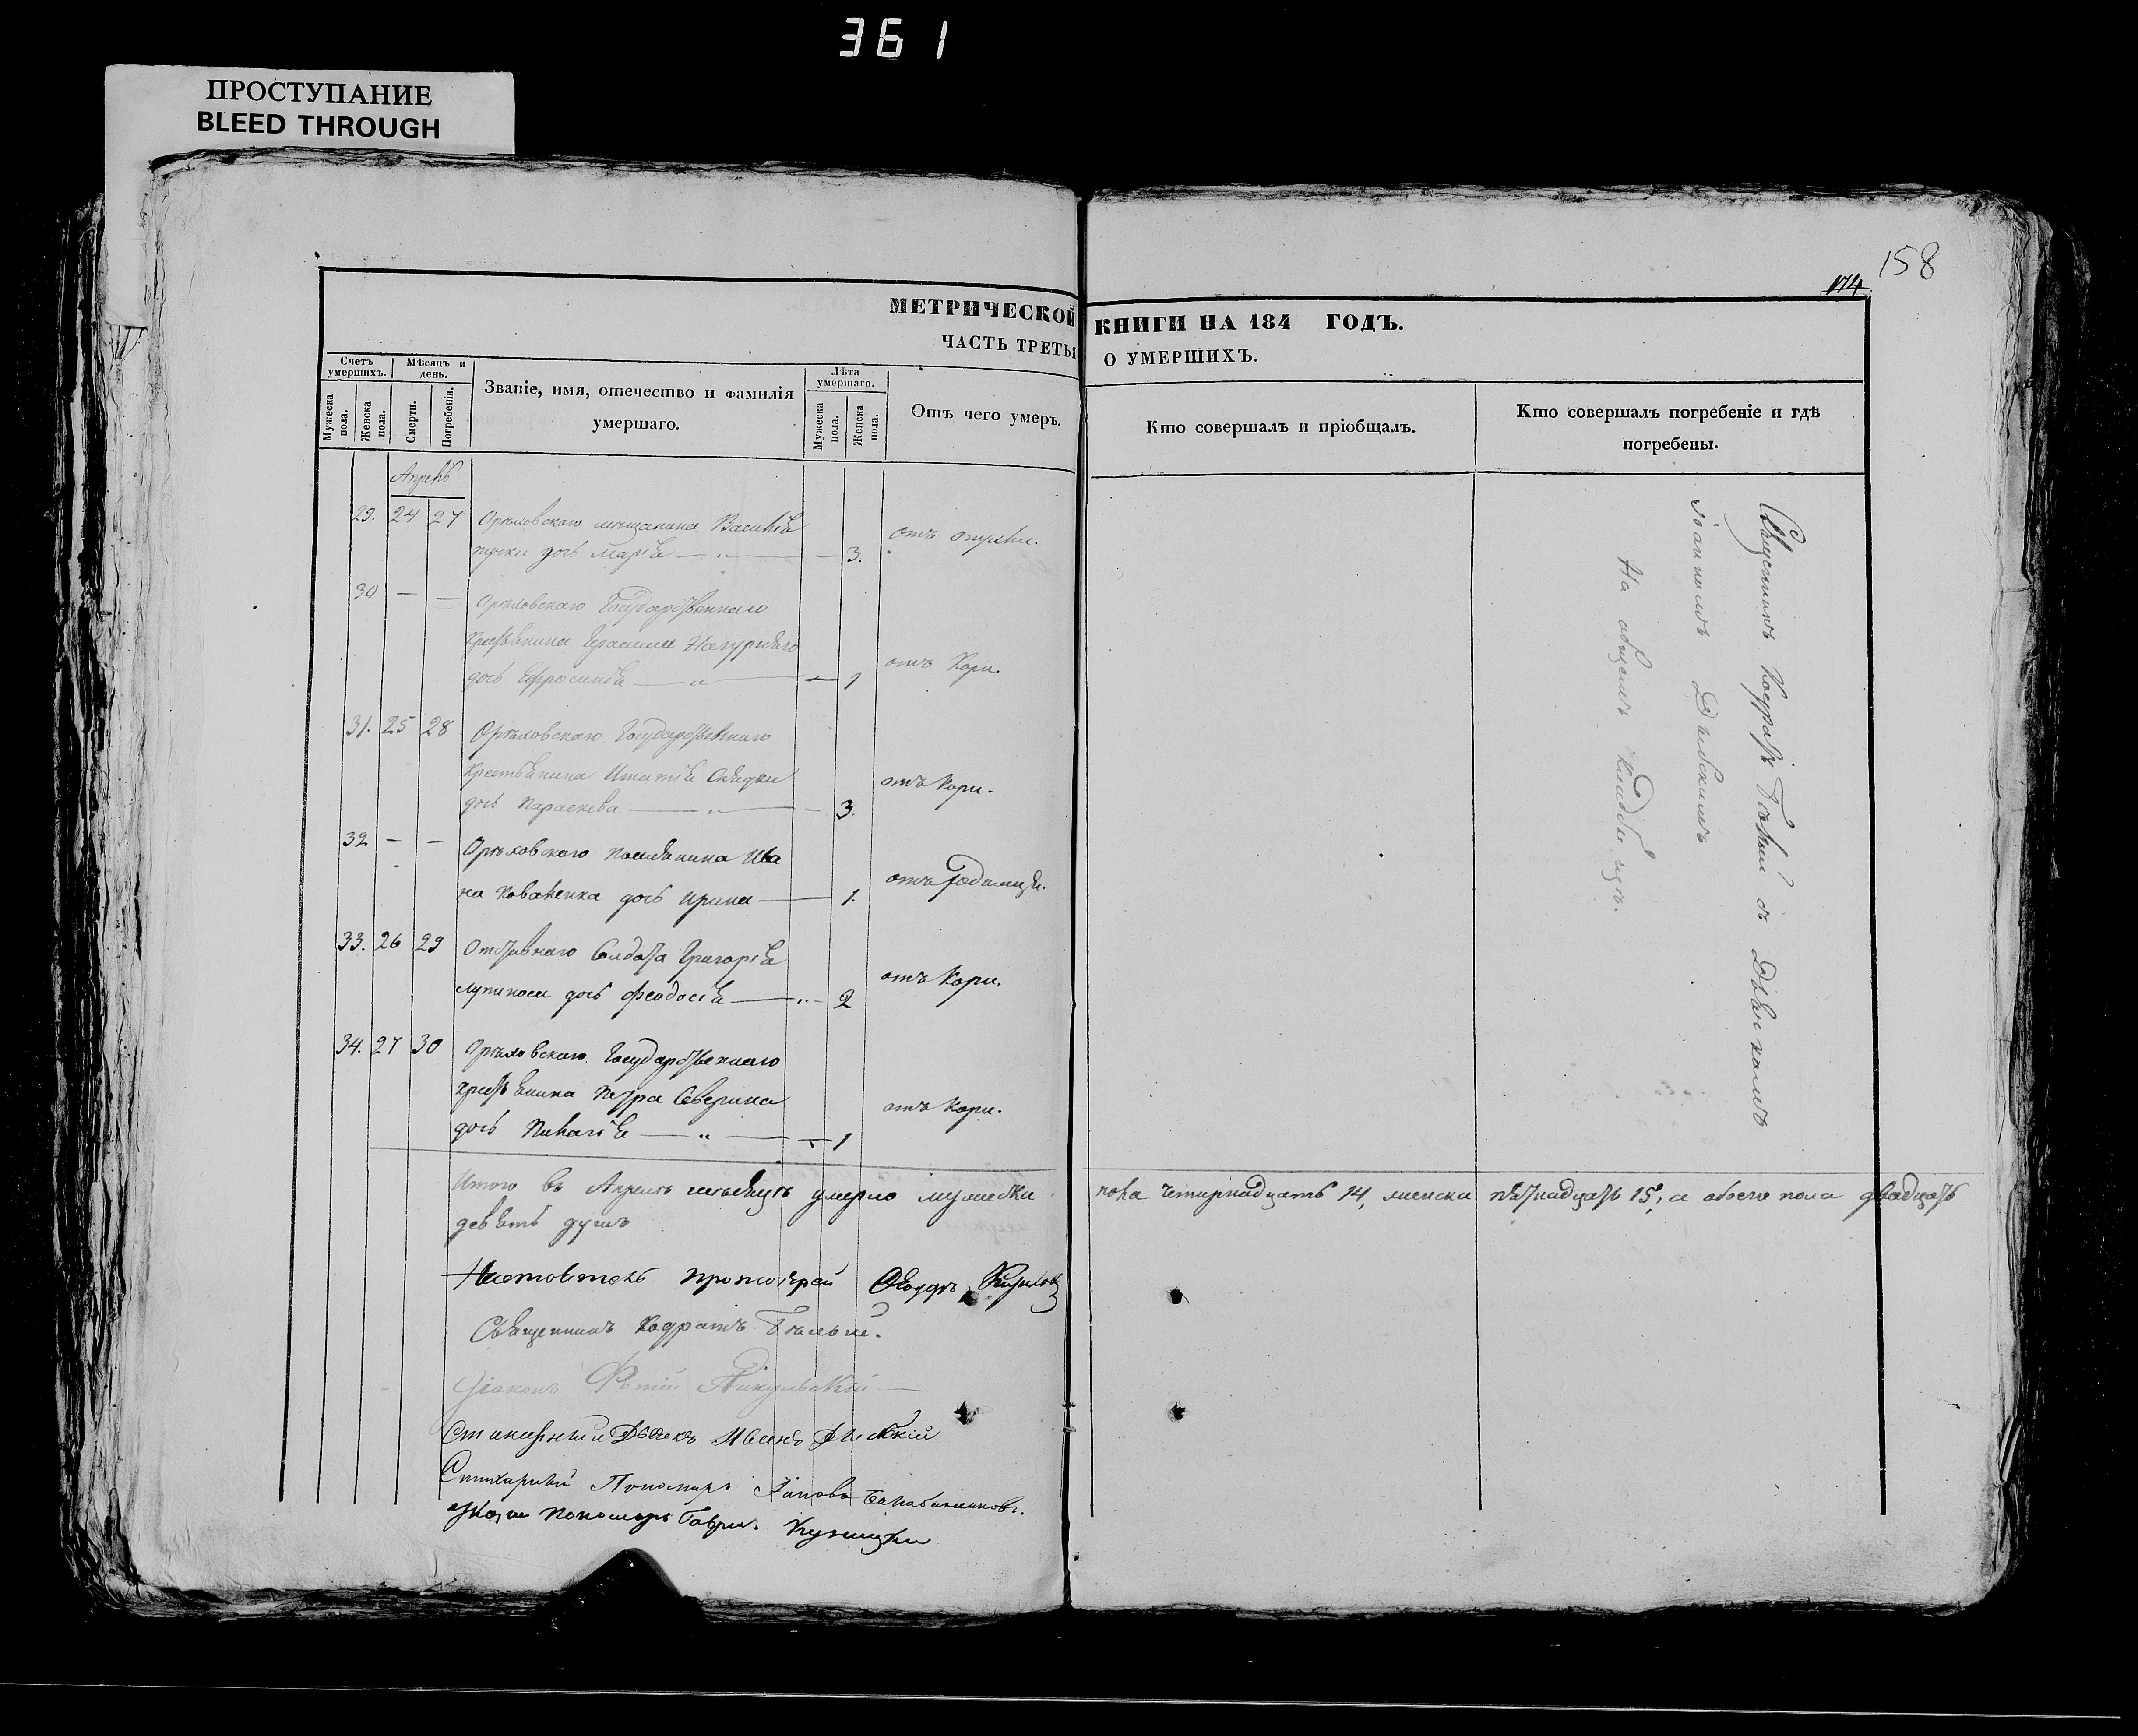 361
ПРОСТУПАНИЕ
BLEED THROUGH
158
174
МЕТРИЧЕСКОЙ КНИГИ НА 184 ГОДЪ.
ЧАСТЬ ТРЕТЬЯ О УМЕРШИХЪ.
Счетъ умершихъ.
Мужеска пола.
Женска пола.
Мѣсяцъ и день.
Смерти.
Погребенія.
Званіе, имя, отечество и фамилія умершаго.
Лѣта умершаго.
Мужеска пола.
Женска пола.
Отъ чего умеръ.
Кто совершалъ и пріобщалъ.
Кто совершалъ погребеніе и гдѣ погребены.
Апрель
29. 24 27 Орѣховскаго мещанина Василія
дочь Марія — 3. отъ
30 — — Орѣховскаго Государственнаго
Крестьянина Герасима
дочь Ефросинія — 1 отъ Кори.
31. 25 28 Орѣховскаго Государственнаго
Крестьянина Игнатія
дочь Параскева — 3. отъ Кори.
32 — — Орѣховскаго поселянина Ива
на Коваленка дочь Ирина — 1. отъ Родимца.
33. 26 29 Отставнаго Солдата Григорія
дочь Феодосія — 2 отъ Кори.
34. 27 30 Орѣховскаго Государственнаго
крестьянина Петра Северина
дочь Пелагія — 1 отъ Кори.
Священникъ Кодратъ Бѣлый съ Дьякономъ
Іоанномъ
На общемъ Кладбищѣ.
Итого въ Апрелѣ мѣсяцѣ умерло мужеска пола четырнадцать 14, женска пятнадцать 15, а обоего пола двадцать
девять душъ
Настоятель протоіерей Феодоръ Кириловъ
Священникъ Кодратъ Бѣлый.
Діаконъ Фотій
Стихарный Дьячекъ Иванъ
Стихарный Пономарь
Пономарь Гавріилъ